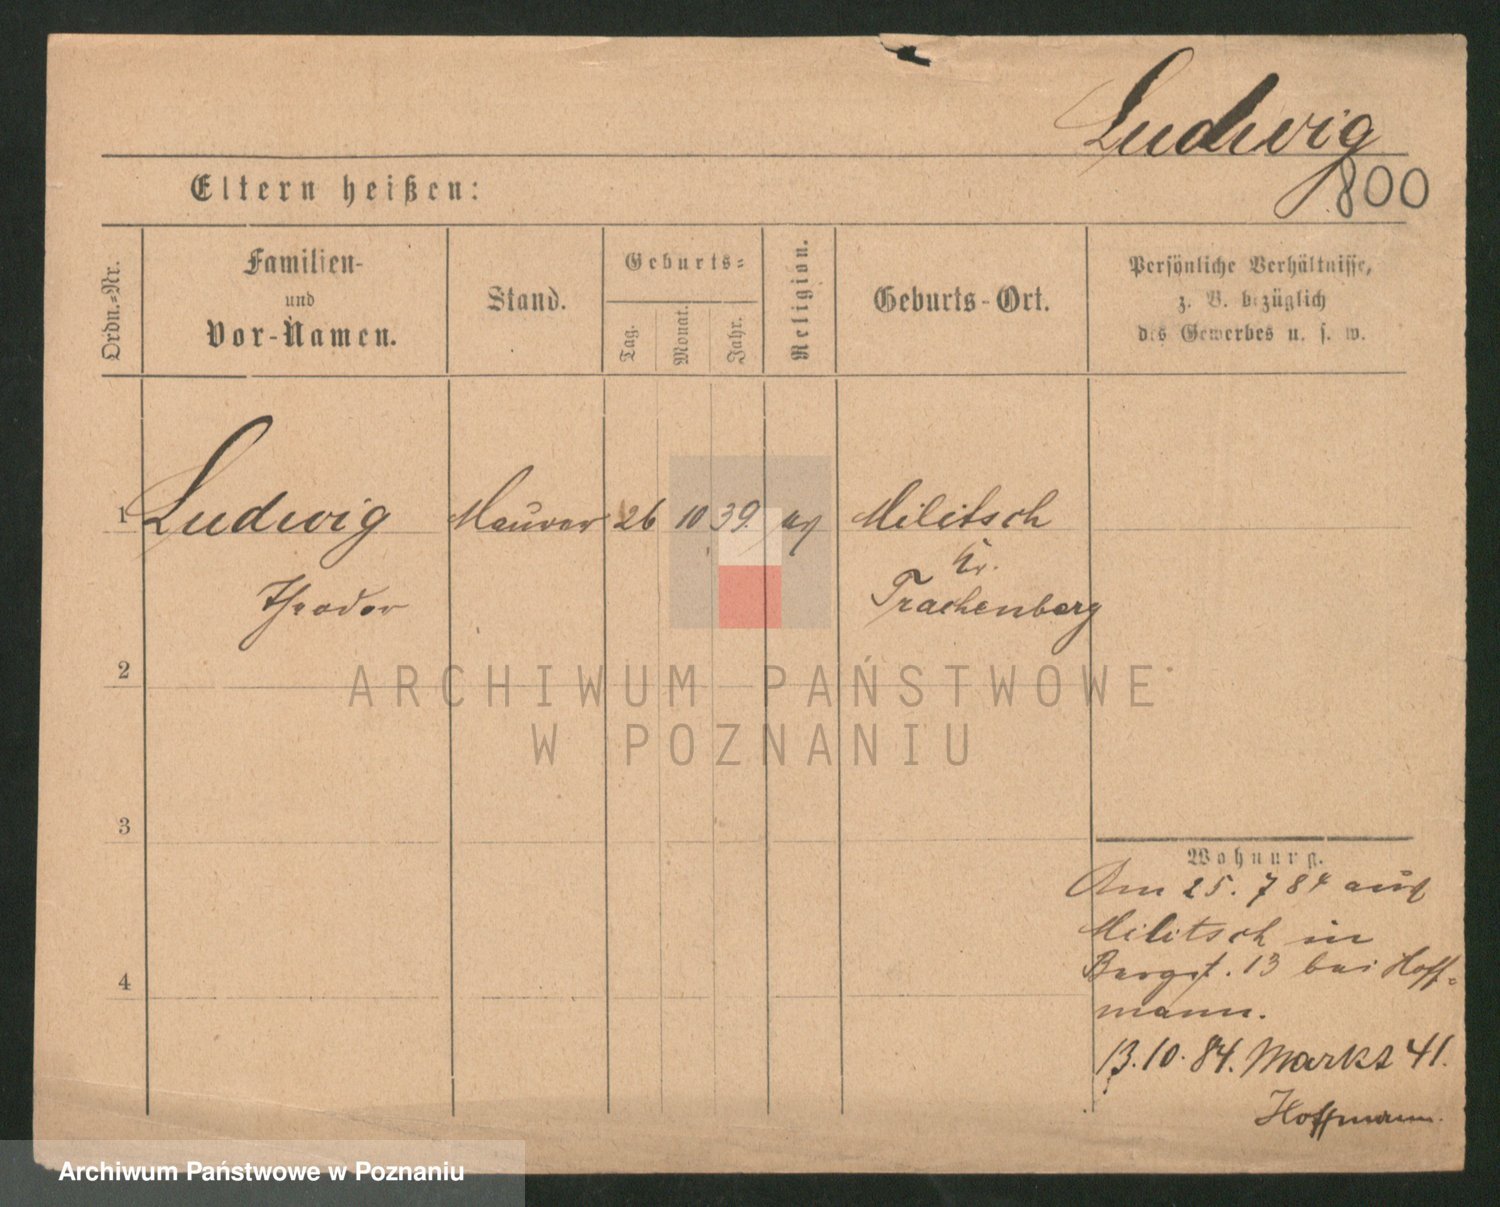 Ludwig
800
Eltern heißen:
Ordn.-Nr.
Familien-
und
Vor-Namen.
Stand.
Geburts-
Tag.
Monat.
Jahr.
Religion.
Geburts-Ort.
Persönliche Verhältnisse,
z. B. bezüglich
des Gewerbes u. s. w.
1 Ludwig Maurer 26 10 39. Militsch
Kr.
Theodor Trachenberg
2
ARCHIWUM PAŃSTWOWE
W POZNANIU
3
Wohnung.
Am 25. 7 84 aus
Militsch in
4 Bergst. 13 bei Hoff-
mann.
13. 10. 84. Markt 41.
Hoffmann.
Archiwum Państwowe w Poznaniu